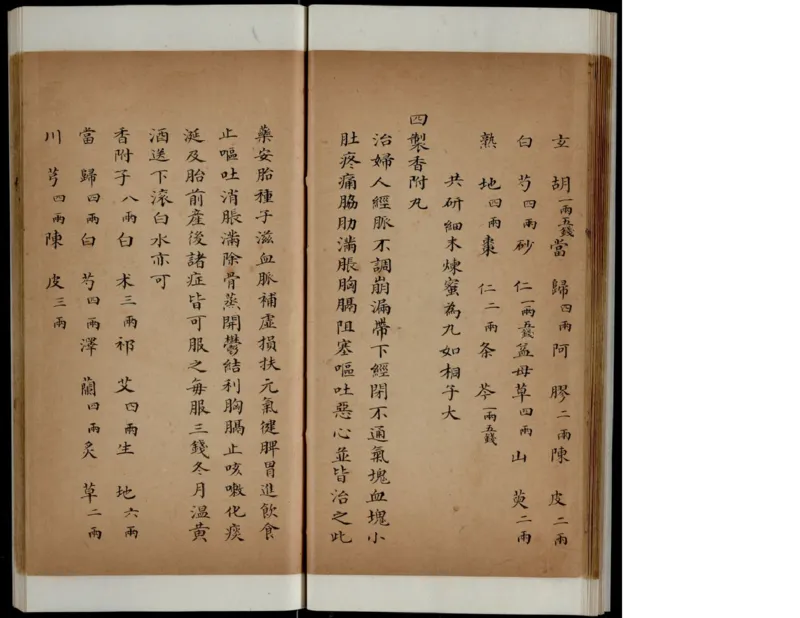 玄胡一兩五錢當歸四兩阿膠二兩陳皮二兩
白芍四兩砂仁一兩五錢益母草四兩山萸二兩
熟地四兩棗仁二兩条芩一兩五錢
共研細末煉蜜為九如桐子大
四製香附丸
治婦人經脈不調崩漏帶下經閉不通氣塊血塊小
肚疼痛脇肋滿脹胸膈阻塞嘔吐惡心並皆治之此
藥安胎種子滋血脈補虛損扶元氣健脾胃進飲食
止嘔吐消脹滿除骨蒸開鬱結利胸膈止咳嗽化痰
涎及胎前產後諸症皆可服之每服三錢冬月温黃
酒送下滚白水亦可
香附子八兩白术三兩祁艾四兩生地六兩
當歸四兩白芍四兩澤蘭四兩炙草二兩
川芎四兩陳皮三兩